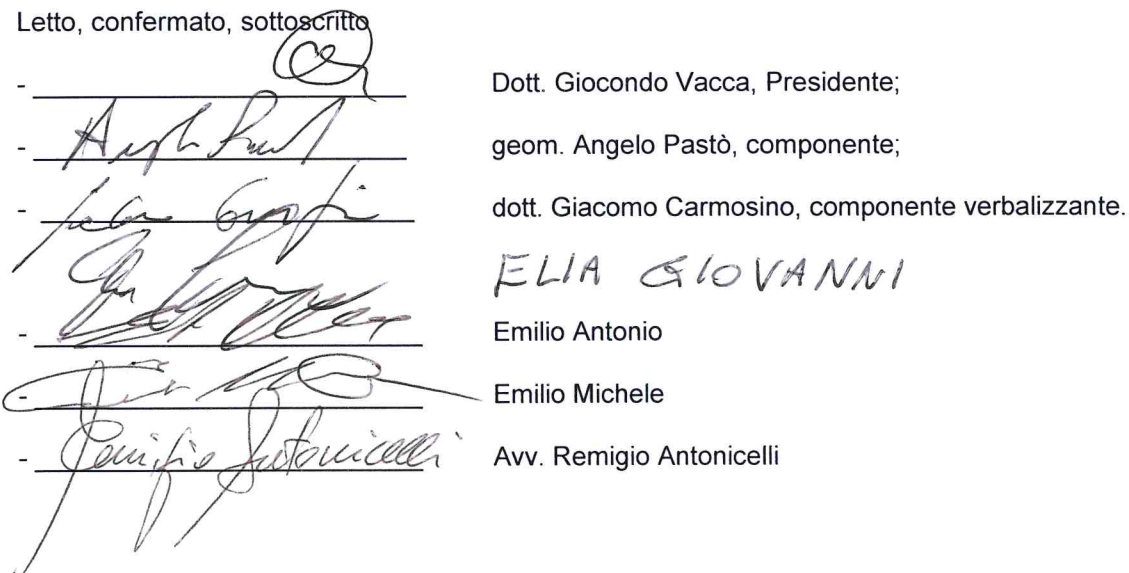 Letto, confermato, sottoscritto
- Dott. Giocondo Vacca, Presidente;
- geom. Angelo Pastò, componente;
- dott. Giacomo Carmosino, componente verbalizzante.
ELIA GIOVANNI
- Emilio Antonio
- Emilio Michele
- Remigio Antonicelli Avv. Remigio Antonicelli